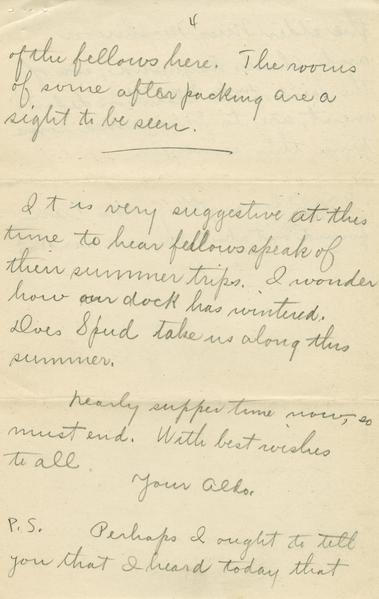 4
of the fellows here. The rooms
of some after packing are a
sight to be seen.
It is very suggestive at this
time to hear fellows speak of
their summer trips. I wonder
how our dock has wintered.
Does Spud take us along this
summer.
Nearly supper time now, so
must end. With best wishes
to all.
Your
P.S. Perhaps I ought to tell
you that I heard today that